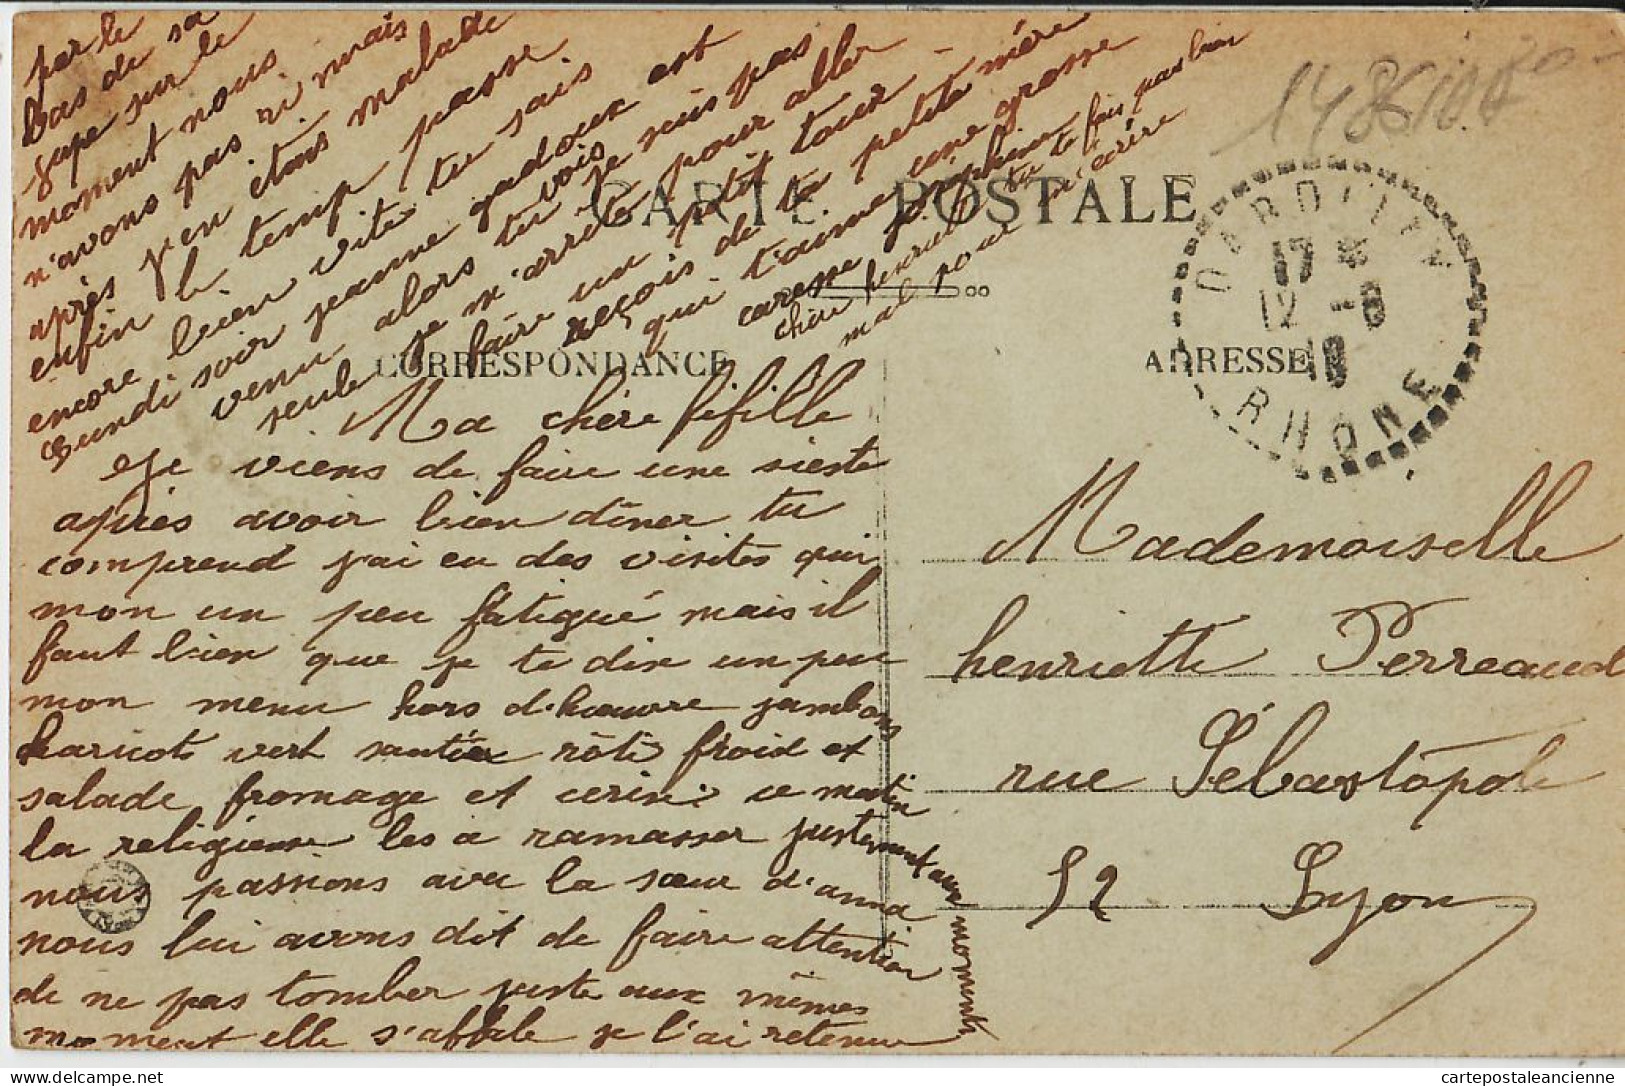 CARTE POSTALE
CORRESPONDANCE
ADRESSE
DARDILLY
17
12 - 8
RHONE
Ma chère fifille
Je viens de faire une sieste
après avoir bien dîner tu
comprend j'ai eu des visites qui
mon un peu fatigué mais il
faut bien que je te dise un peu
mon menu hors d'hœuvre jambons
haricots vert sautée rôti froid et
salade fromage et cerise ce matin
la religieuse les a ramasser justement aux moments
nous passions avec la sœur d'anna
nous lui avons dit de faire attention
de ne pas tomber juste aux mêmes
moment elle s'affale je l'ai retenue
par le
bas de sa
jupe sur le
moment nous
n'avons pas ri mais
après j'en étais malade
enfin le temp passe
encore bien vite tu sais
Lundi soir jeanne gadoux est
venu alors tu vois je suis pas
seule je m'arrête pour aller
faire un petit tour -
reçois de ta petite mère
qui t'aime une grosse
caresse joséphine
chère henriette tu te fais pas bien
mal pour m'écrire
Mademoiselle
henriette Perreaud
rue Sébastopole
52 Lyon
cartepostaleancienne